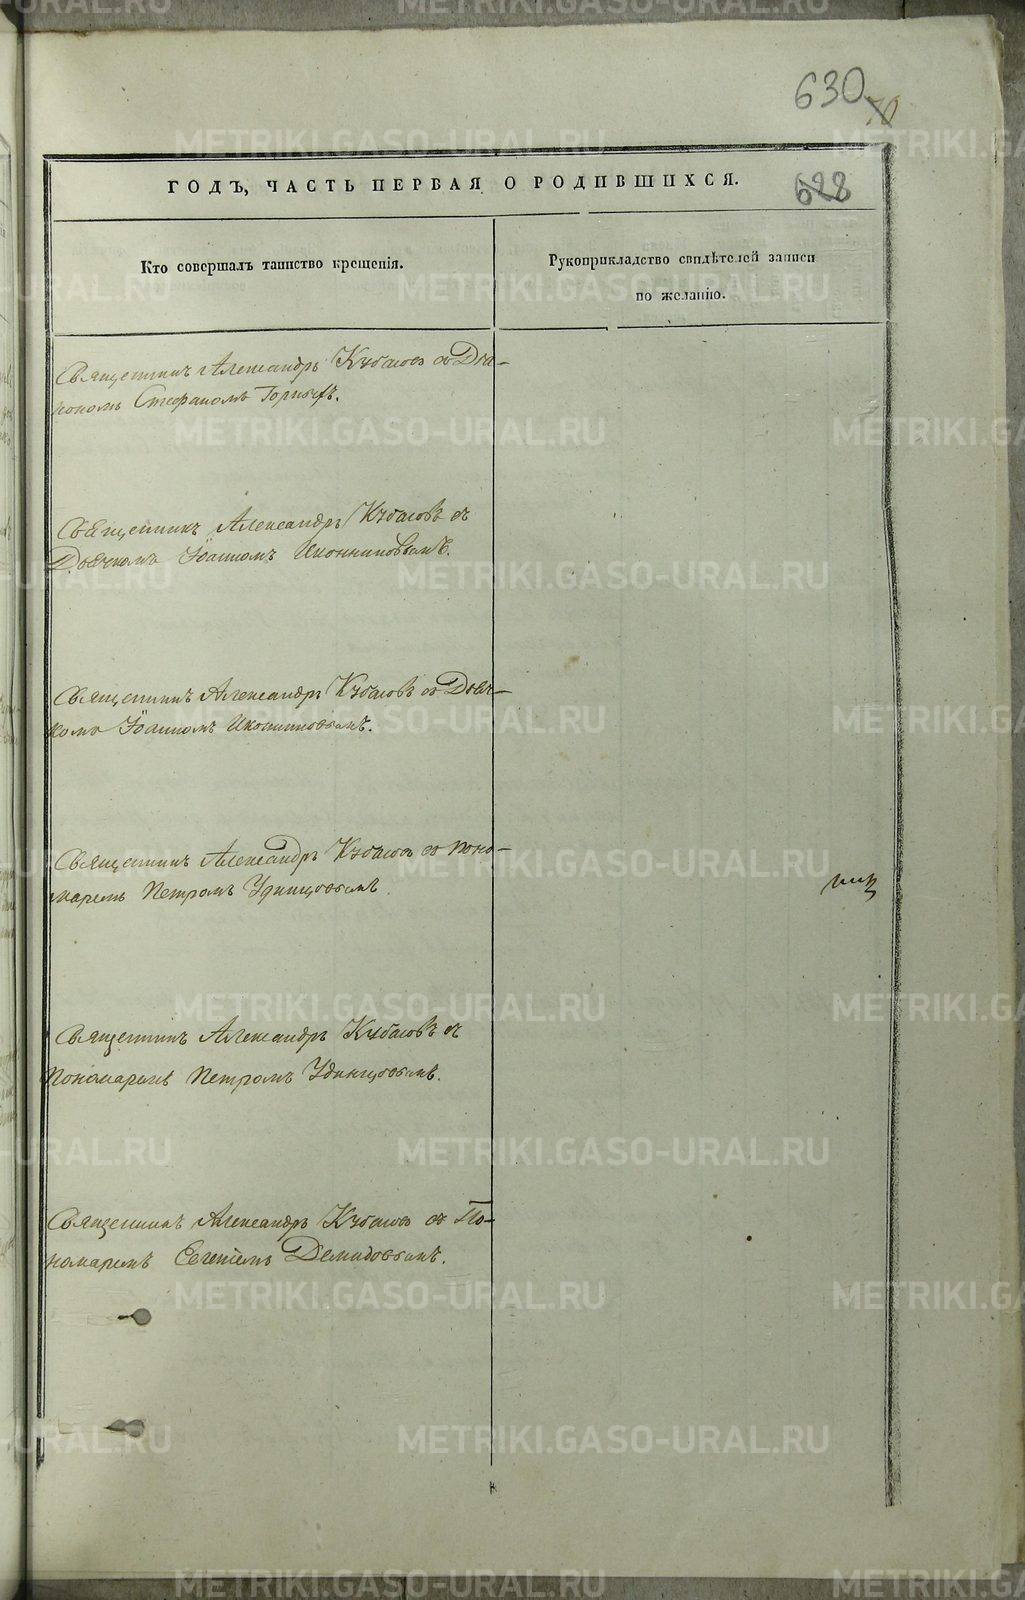 630
70
ГОДЪ, ЧАСТЬ ПЕРВАЯ О РОДИВШИХСЯ.
622
Кто совершалъ таинство крещенія.
Рукоприкладство свидѣтелей записи
по желанію.
Священникъ Александръ Кубасовъ съ Діа-
кономъ Стефаномъ
Священникъ Александръ Кубасовъ съ
Дьячкомъ Іоанномъ Иконниковымъ.
Священникъ Александръ Кубасовъ съ Дьяч-
комъ Іоанномъ Иконниковымъ.
Священникъ Александръ Кубасовъ съ поно-
маремъ Петромъ Удинцовымъ.
Священникъ Александръ Кубасовъ съ
Пономаремъ Петромъ Удинцовымъ.
Священникъ Александръ Кубасовъ съ По-
номаремъ Евгеніемъ Демидовымъ.
METRIKI.GASO-URAL.RU